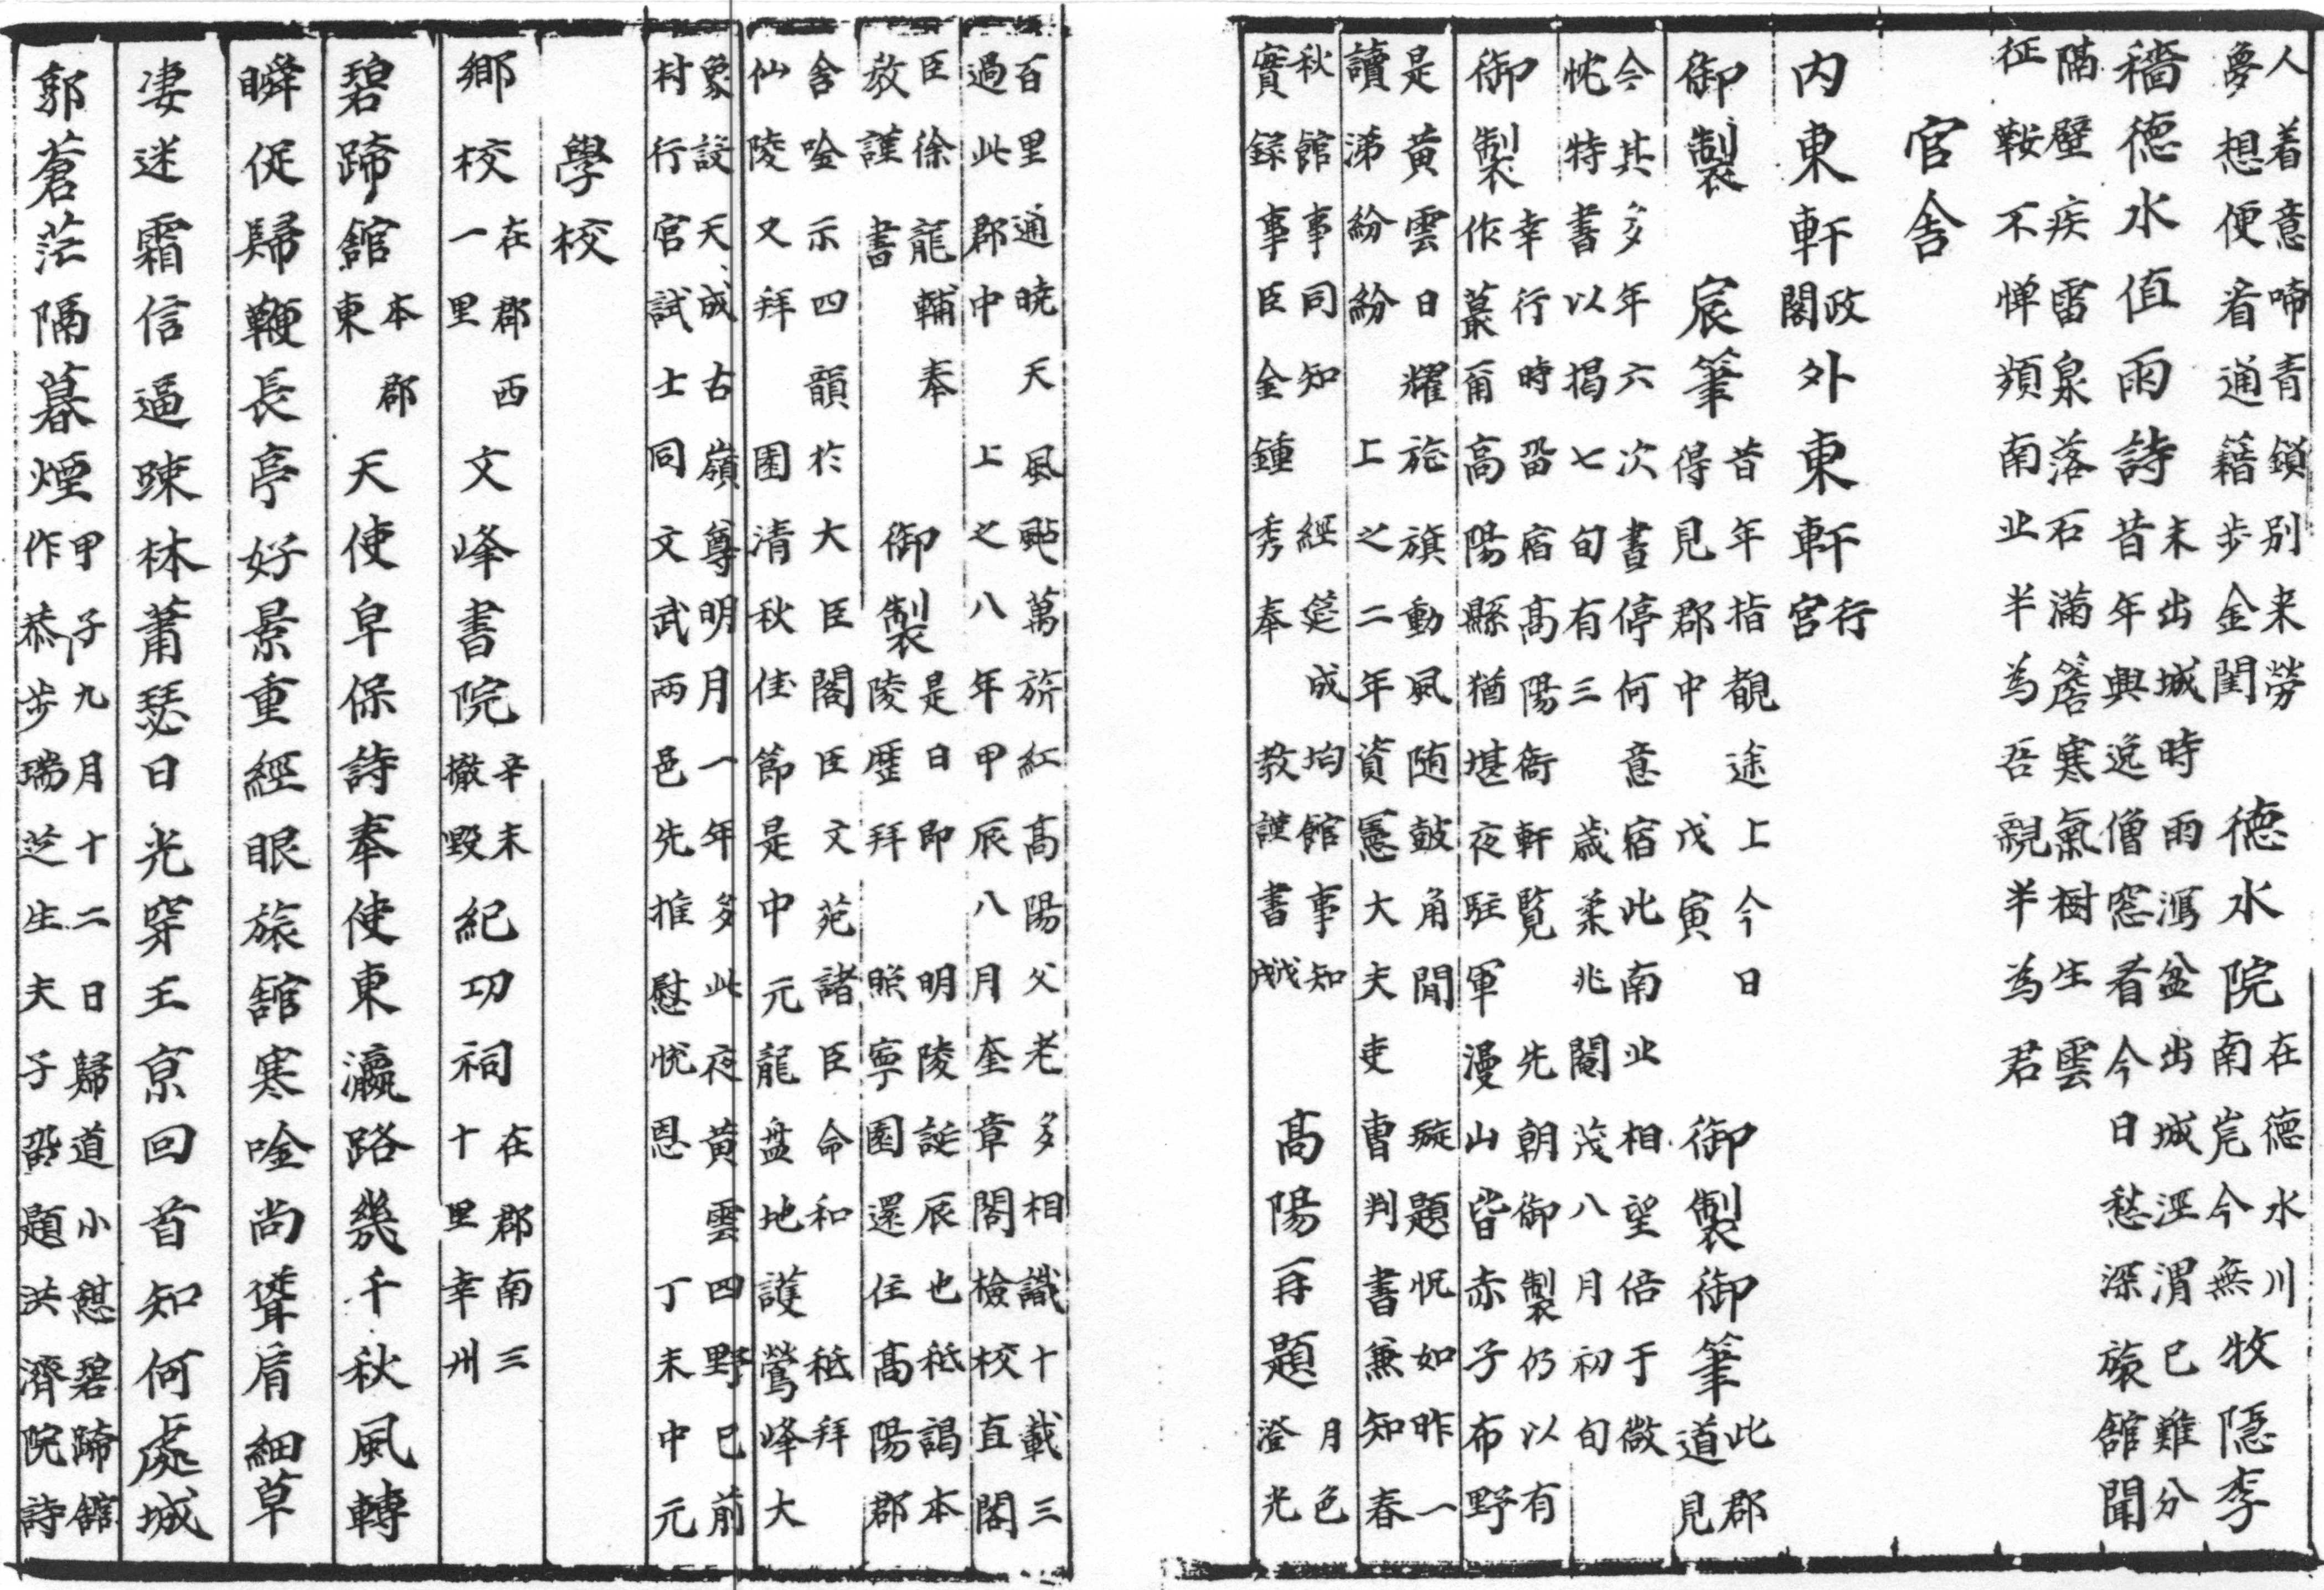 人着意啼青鎖別来勞夢想便看通籍步金閨德水院在德水川南岸今無牧隱李
穡德水值雨詩末出城時雨瀉盆出城涇渭已難分昔年與逸僧窓看今日愁深旅舘聞
隔壁疾雷泉落石滿簷寒氣樹生雲征鞍不憚頻南北半為吾親半為君
官舍
内東軒政閣外東軒行宮
御製宸筆昔年指覩途上今日得見郡中戊寅御製御筆此郡道見
今其多年六次書停何意宿此南北相望倍于微忱特書以揭七旬有三歲柔兆閹茂八月初旬
御製幸行時留宿高陽衙軒覧先朝御製仍以有作蕞爾高陽縣猶堪夜駐軍漫山皆赤子布野
是黄雲日耀旂旗動風随鼓角聞璇題怳如昨一讀涕紛紛上之二年資憲大夫吏曹判書兼知春
秋館事同知經筵成均館事知實錄事臣金鍾秀奉教謹書高陽再題月色澄光
百里通曉天風颭萬旂紅高陽父老多相識十載三過此郡中上之八年甲辰八月奎章閣檢校直閣
臣徐龍輔奉教謹書御製是日即明陵誕辰也祗謁本陵歷拜昭寧園還住高陽郡
舍唫示四韻於大臣閣臣文苑諸臣命和祗拜仙陵又拜園清秋佳節是中元龍盘地護鶯峰大
象設天成古嶺尊明月一年多此夜黄雲四野已前村行官試士同文武兩邑先推慰悦恩丁未中元
學校
鄉校在郡西一里文峰書院辛未撤毀紀功祠在郡南三十里幸州
碧蹄舘本郡東天使皐保詩奉使東瀛路幾千秋風轉
瞬促歸鞭長亭好景重經眼旅舘寒唫尚聳肩細草
凄迷霜信逼踈林蕭瑟日光穿王京回首知何處城
郭蒼茫隔暮煙甲子九月十二日歸道小憇碧蹄舘作恭步瑞芝生夫子留題洪濟院詩